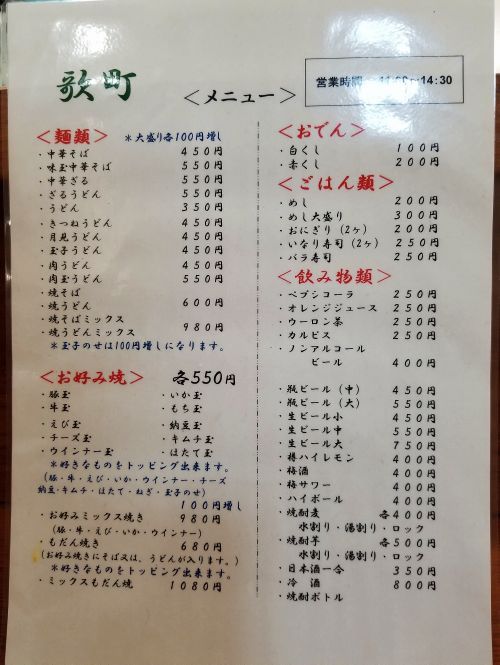 歌町
＜メニュー＞
営業時間
14:30
＜麺類＞ ＊大盛り各100円増し
・中華そば 450円
・味玉中華そば 550円
・中華ざる 550円
・ざるうどん 550円
・うどん 350円
・きつねうどん 450円
・月見うどん 450円
・玉子うどん 450円
・肉うどん 450円
・肉玉うどん 550円
・焼そば
・焼うどん 600円
・焼そばミックス
・焼うどんミックス 980円
＊玉子のせは100円増しになります。
＜お好み焼＞ 各550円
・豚玉 ・いか玉
・牛玉 ・もち玉
・えび玉 ・納豆玉
・チーズ玉 ・キムチ玉
・ウインナー玉 ・ほたて玉
＊好きなものをトッピング出来ます。
(豚・牛・えび・いか・ウインナー・チーズ
納豆・キムチ・ほたて・ねぎ・玉子のせ)
100円増し
・お好みミックス焼き 980円
(豚・牛・えび・いか・ウインナー)
・もだん焼き 680円
(お好み焼きにそば又は、うどんが入ります。)
＊好きなものをトッピング出来ます。
・ミックスもだん焼 1080円
＜おでん＞
・白くし 100円
・赤くし 200円
＜ごはん類＞
・めし 200円
・めし大盛り 300円
・おにぎり(2ヶ) 200円
・いなり寿司(2ヶ) 250円
・バラ寿司 250円
＜飲み物類＞
・ペプシコーラ 250円
・オレンジジュース 250円
・ウーロン茶 200円
・カルピス 250円
・ノンアルコール
ビール 400円
・瓶ビール(中) 450円
・瓶ビール(大) 550円
・生ビール小 450円
・生ビール中 550円
・生ビール大 750円
・樽ハイレモン 400円
・梅酒 400円
・梅サワー 400円
・ハイボール 400円
・焼酎麦 各400円
水割り・湯割り・ロック
・焼酎芋 各500円
水割り・湯割り・ロック
・日本酒一合 350円
・冷酒 800円
・焼酎ボトル